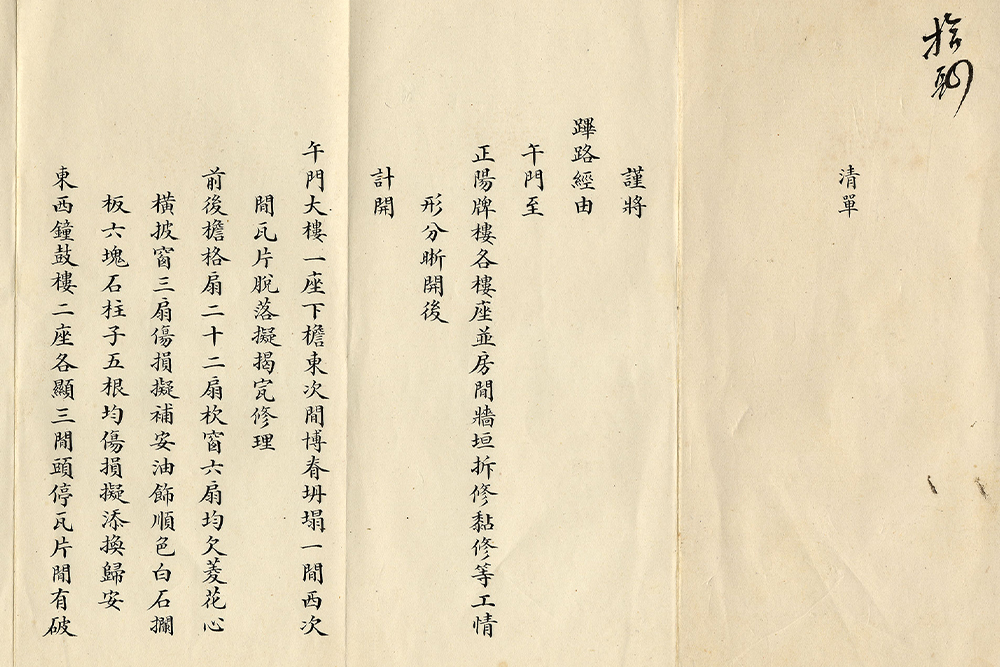 清單
謹將
蹕路經由
午門至
正陽牌樓各樓座並房間牆垣拆修黏修等工情
形分晰開後
計開
午門大樓一座下檐東次間博脊坍塌一間西次
間瓦片脫落擬揭瓷修理
前後擔格扇二十二扇杴窗六扇均欠菱花心
橫披窗三扇傷損擬補安油飾順色白石攔
板六塊石柱子五根均傷損擬添換歸安
東西鐘鼓樓二座各顯三間頭停瓦片間有破